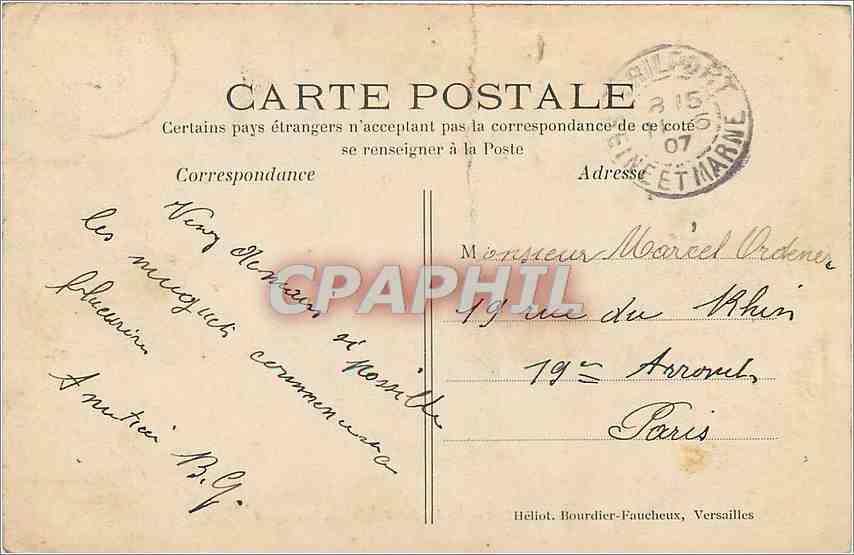 CARTE POSTALE
Certains pays étrangers n'acceptant pas la correspondance de ce coté
se renseigner à la Poste
Correspondance
Adresse
8 15
07
SEINE ET MARNE
Venez demain si possible
les muguets commencent a
fleurir
Amitiés B.G.
Monsieur Marcel Ordener
19 rue du Rhin
19er Arrondt
Paris
CPAPHIL
Héliot. Bourdier-Faucheux, Versailles